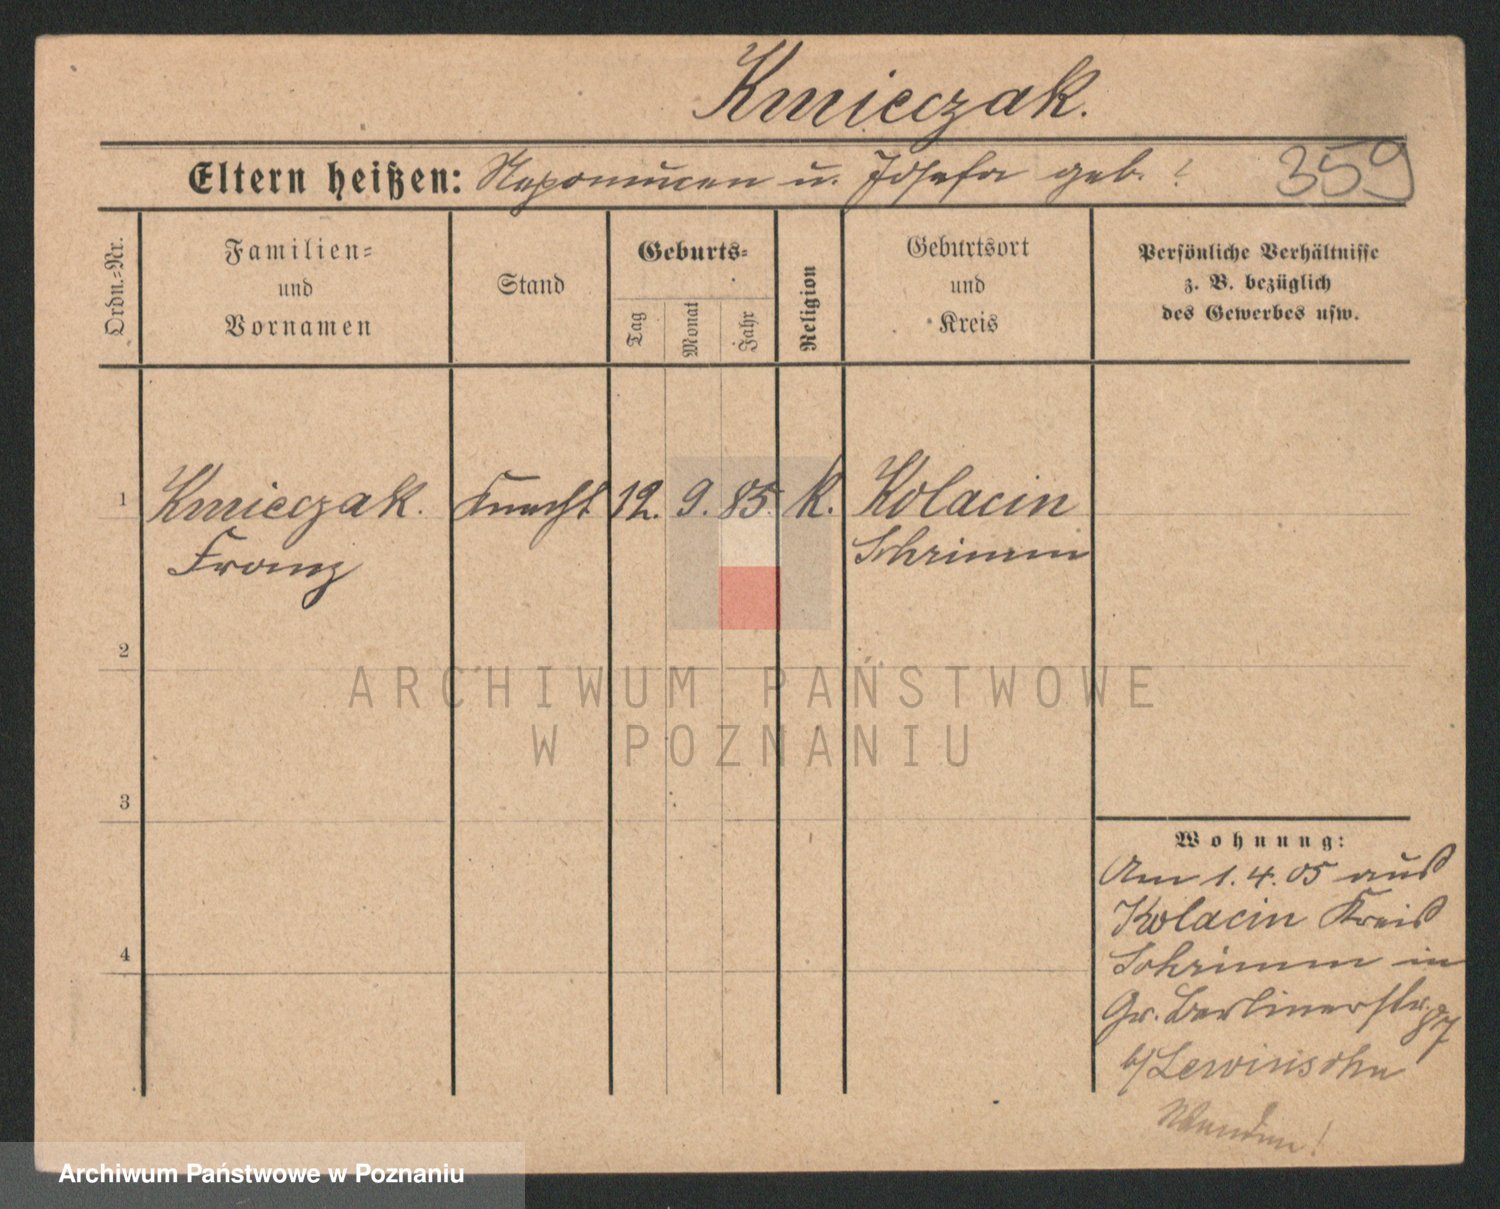 Kmieczak.
Eltern heißen: Nepomucen u. Josefa geb. ?
359
Ordn.-Nr.
Familien-
und
Vornamen
Stand
Geburts-
Tag
Monat
Jahr
Religion
Geburtsort
und
Kreis
Persönliche Verhältnisse
z. B. bezüglich
des Gewerbes usw.
1 Kmieczak. Knecht 12. 9. 85. k. Kolacin
Franz Schrimm
2
3
4
Wohnung:
Am 1.4.05 aus
Kolacin Kreis
Schrimm in
Gr. Berlinerstr. 87
b/Lewinsohn
Wenden!
ARCHIWUM PAŃSTWOWE
W POZNANIU
Archiwum Państwowe w Poznaniu